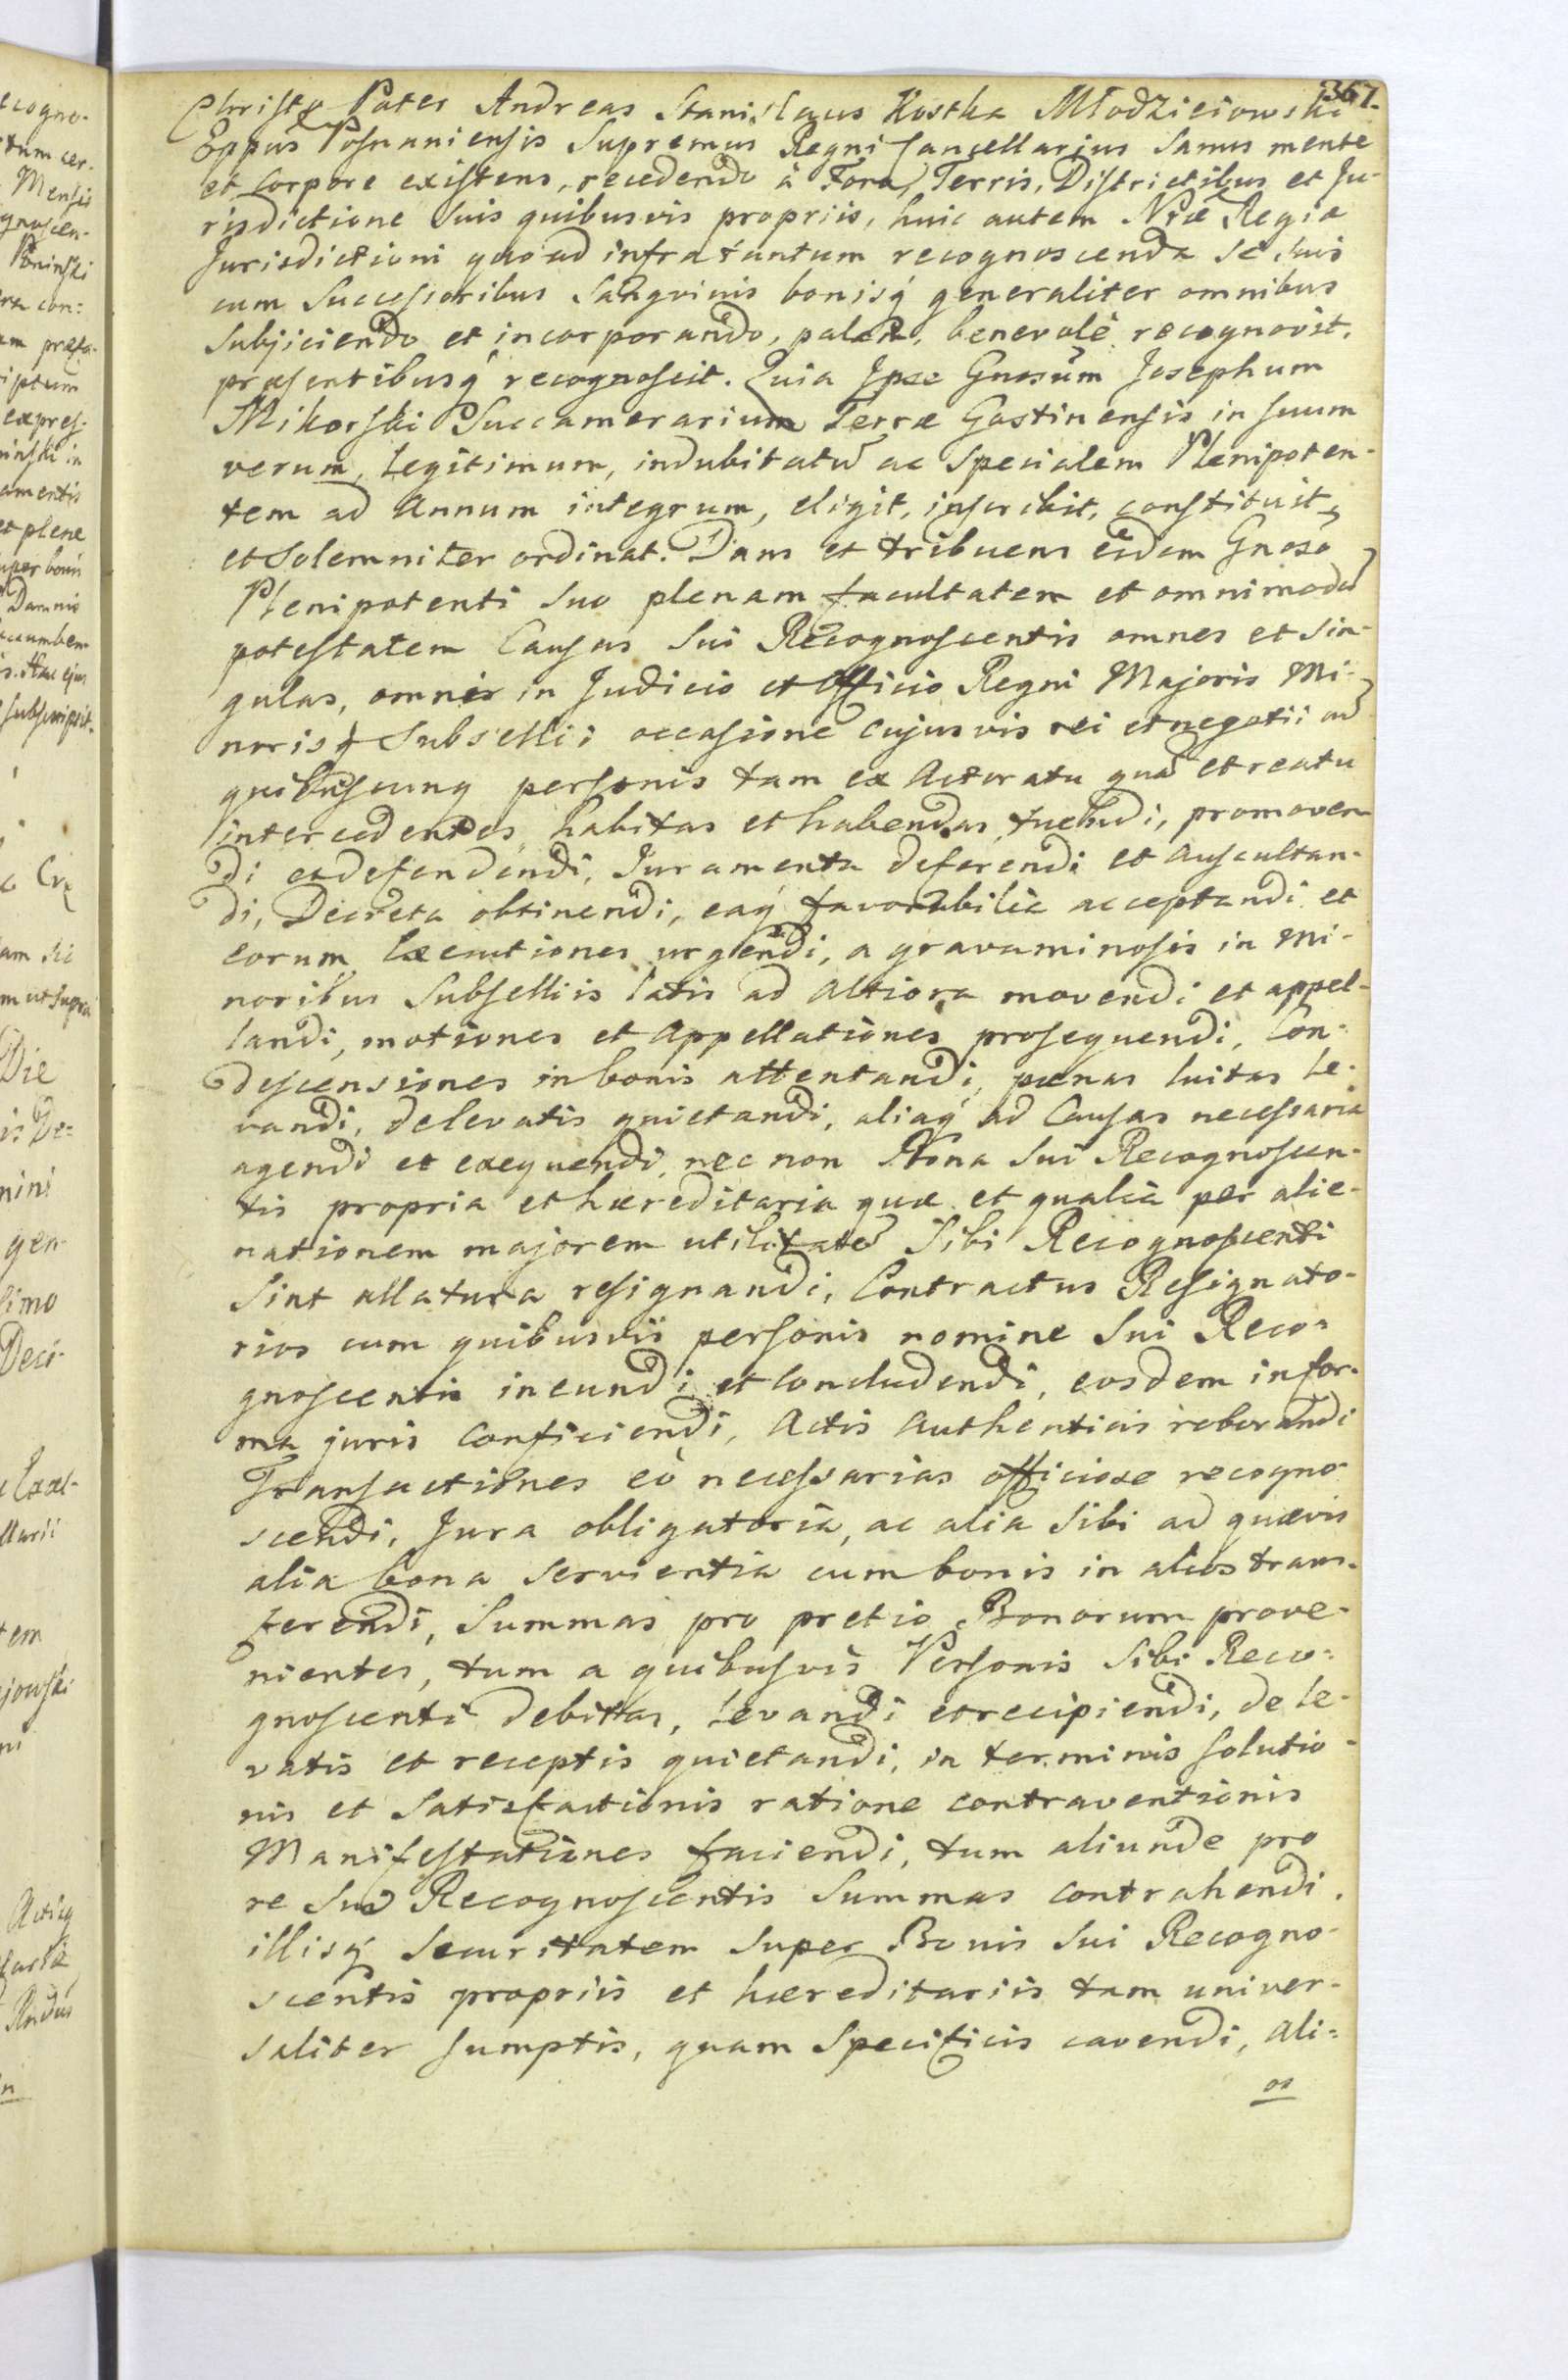 367.
Christo Pater Andreas Stanislaus Kostka Młodzieiowski
Eppus Posnaniensis Supremus Regni Cancellarius Sanus mente
et Corpore existens, recedendo à Foro, Terris, Districtibus et Ju-
risdictione Suis quibusvis propriis, huic autem Nrae Regiae
Jurisdictioni quo ad infra tantum recognoscenda Se Suis
cum Successoribus Sangvinis bonisq generaliter omnibus
Subjiciendo et incorporando, palam, benevolè recognovit,
praesentibusq recognoscit. Quia Ipse Gnosum Josephum
Mikorski Succamerarium Terrae Gostinensis in suum
verum, Legitimum, indubitatū ac Specialem Plenipoten-
tem ad Annum integrum, eligit, inscribit, constituit
et Solemniter ordinat. Dans et tribuens eidem Gnoso
Plenipotenti Suo plenam facultatem et omnimodā
potestatem Causas Sui Recognoscentis omnes et Sin-
gulas, omnis in Judicio et Officio Regni Majoris Mi-
norisq Subsellii occasione cujusvis rei et negotii cū
quibuscunq personis tam ex Actoratu quā et reatu
intercedentes habitas et habendas, tuendi, promoven
di et defendendi, Juramenta deferendi et Auscultan-
di, Decreta obtinendi, eaq favorabilia acceptandi et
eorum Executiones urgendi, a gravaminosis in Mi-
noribus Subselliis latis ad Altiora movendi et appel-
landi, motiones et Appellationes prosequendi, Con-
descensiones in bonis attentandi, paenas luitas Le-
vandi, de levatis quietandi, aliaq ad Causas necessaria
agendi et exequendi, nec non Bona Sui Recognoscen-
tis propria et haereditaria quae et qualia per alie-
nationem majorem utilitatē Sibi Recognoscenti
Sint allatura resignandi, Contractus Resignato-
rios cum quibusvis personis nomine Sui Reco-
gnoscentis ineundi et Concludendi, eosdem in for-
ma juris Conficiendi, Actis Authenticis roborandi
Transactiones eò necessarias officiose recogno-
scendi, Jura obligatoria, ac alia Sibi ad quaevis
alia bona Servientia cum bonis in alios trans-
ferendi, Summas pro pretio Bonorum prove-
nientes, tum a quibusvis Personis Sibi Reco-
gnoscenti debittas, Levandi et recipiendi, de le-
vatis et receptis quietandi, in terminis Solutio-
nis et Satisfactionis ratione contraventionis
Manifestationes faciendi, tum aliunde pro
re Sui Recognoscentis Summas contrahendi,
illisq Securitatem Super Bonis Sui Recogno-
scentis propriis et haereditariis tam univer-
saliter Sumptis, quam Specificis cavendi, ali-
os